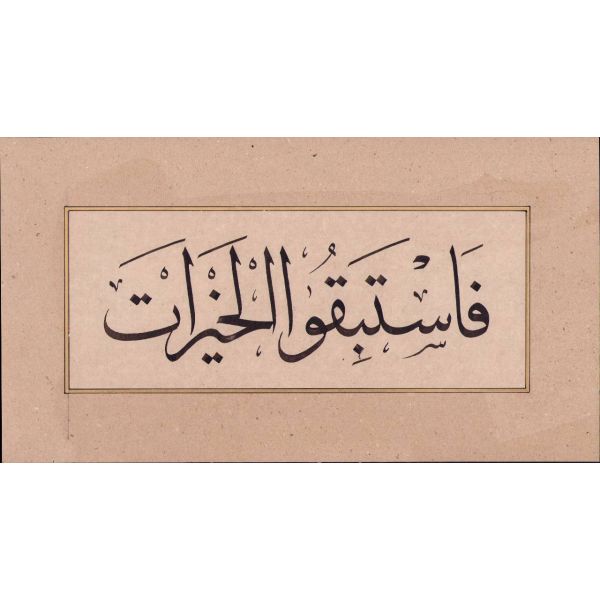 فَاسْتَبِقُوا الْخَيْرَاتِ